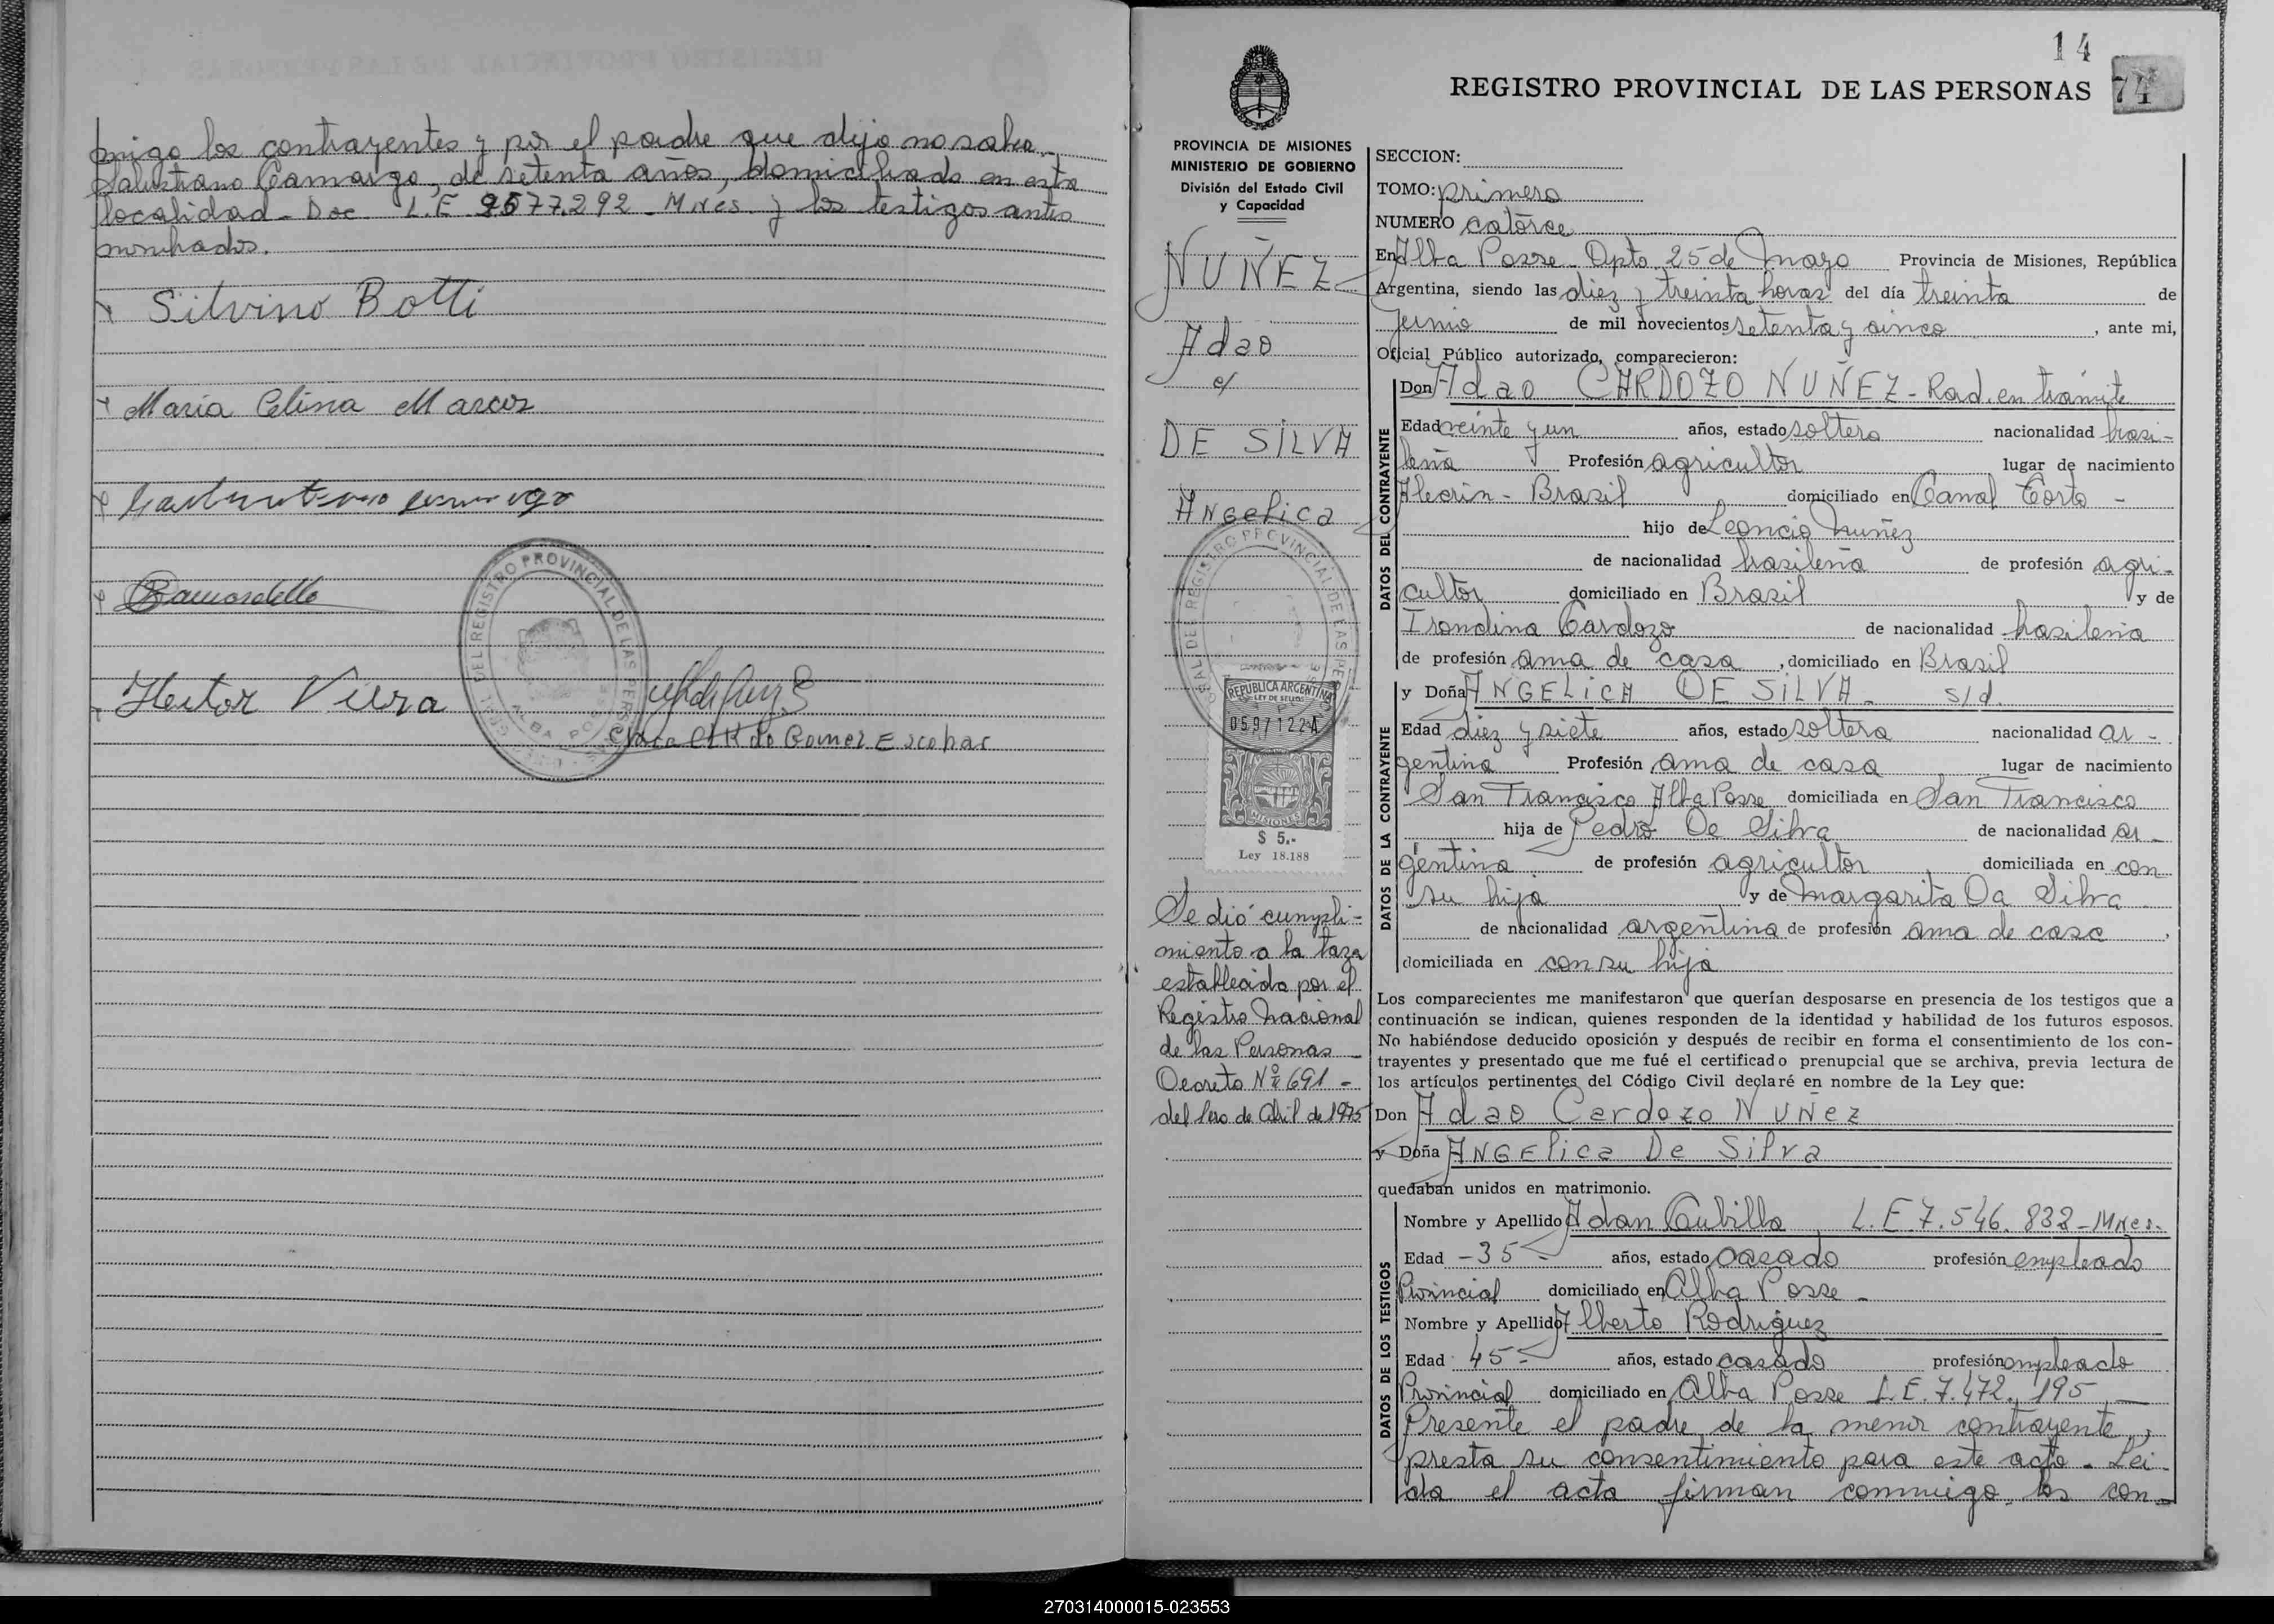 migo los contrayentes y por el padre que dijo no saber
Salustiano Camargo, de setenta años, domiciliado en esta
localidad - Doc L.E 9577292 - Mnes. y los testigos antes
nombrados.
Silvino Botti
Maria Celina Marcos
Hector Viera
Gomez Escobar
14
REGISTRO PROVINCIAL DE LAS PERSONAS
74
PROVINCIA DE MISIONES
MINISTERIO DE GOBIERNO
División del Estado Civil
y Capacidad
NUÑEZ
Adao
c/
DE SILVA
Angelica
REPUBLICA ARGENTINA
LEY DE SELLOS
0597122
MISIONES
$ 5.-
Ley 18.188
Se dió cumpli-
miento a la taza
establecida por el
Registro Nacional
de las Personas
Decreto Nº 691 -
del 1ero de Abril de 1975
SECCION:
TOMO: primero
NUMERO catorce
En Alba Posse - Dpto 25 de Mayo Provincia de Misiones, República
Argentina, siendo las diez y treinta horas del día treinta de
Junio de mil novecientos setenta y cinco, ante mi,
Oficial Público autorizado, comparecieron:
DATOS DEL CONTRAYENTE
Don Adao CARDOZO NUÑEZ - Rad. en trámite
Edad veinte y un años, estado soltero nacionalidad brasi-
leña Profesión agricultor lugar de nacimiento
Alecrin - Brasil domiciliado en Canal Torto -
hijo de Leoncio Nuñez
de nacionalidad brasileña de profesión agri-
cultor domiciliado en Brasil y de
Irondina Cardozo de nacionalidad brasileña
de profesión ama de casa, domiciliado en Brasil
DATOS DE LA CONTRAYENTE
y Doña ANGELICA DE SILVA - s/d.
Edad diez y siete años, estado soltera nacionalidad ar-
gentina Profesión ama de casa lugar de nacimiento
San Francisco Alba Posse domiciliada en San Francisco
hija de Pedro De Silva de nacionalidad ar-
gentina de profesión agricultor domiciliada en con
su hija y de Margarita Da Silva
de nacionalidad argentina de profesión ama de casa,
domiciliada en con su hija
Los comparecientes me manifestaron que querían desposarse en presencia de los testigos que a
continuación se indican, quienes responden de la identidad y habilidad de los futuros esposos.
No habiéndose deducido oposición y después de recibir en forma el consentimiento de los con-
trayentes y presentado que me fué el certificado prenupcial que se archiva, previa lectura de
los artículos pertinentes del Código Civil declaré en nombre de la Ley que:
Don Adao Cardozo Nuñez
y Doña Angelica De Silva
quedaban unidos en matrimonio.
DATOS DE LOS TESTIGOS
Nombre y Apellido Adan Cubilla L.E 7.546.832 - Mnes.
Edad -35- años, estado casado profesión empleado
Provincial domiciliado en Alba Posse -
Nombre y Apellido Alberto Rodriguez
Edad 45- años, estado casado profesión empleado
Provincial domiciliado en Alba Posse L.E. 7.472.195 -
Presente el padre de la menor contrayente,
presta su consentimiento para este acto. Lei-
da el acta firman conmigo, los con-
270314000015-023553